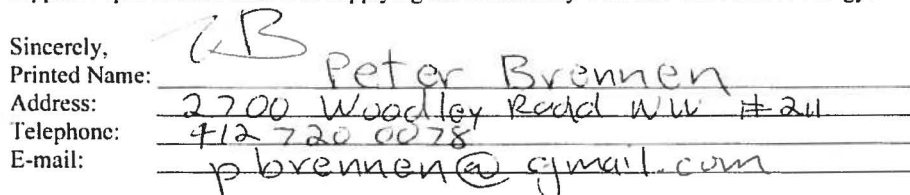 Sincerely,
Printed Name: Peter Brennen
Address: 2700 Woodley Road NW # 211
Telephone: 412 720 0078
E-mail: pbrennen@gmail.com